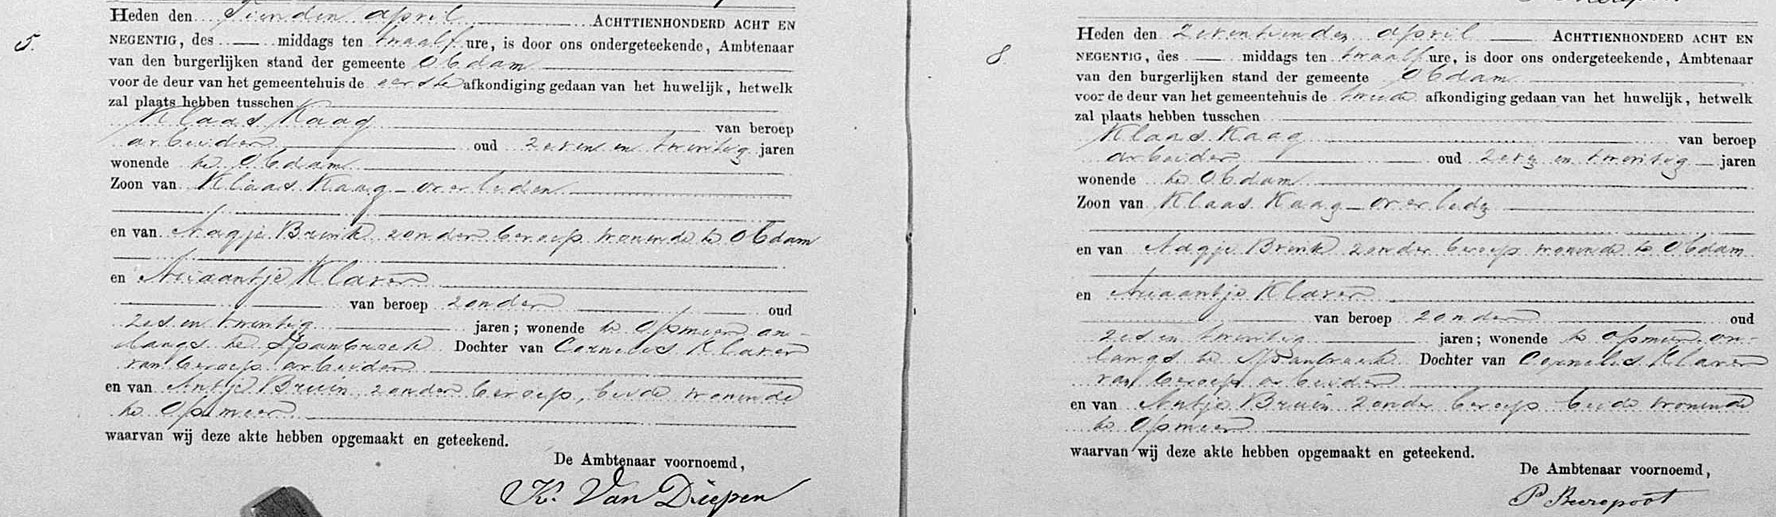 5.
Heden den Tienden april ACHTTIENHONDERD ACHT EN
NEGENTIG, des — middags ten twaalf ure, is door ons ondergeteekende, Ambtenaar
van den burgerlijken stand der gemeente Obdam
voor de deur van het gemeentehuis de eerste afkondiging gedaan van het huwelijk, hetwelk
zal plaats hebben tusschen
Klaas Kaag van beroep
arbeider oud zeven en twintig jaren
wonende te Obdam
Zoon van Klaas Kaag - overleden
en van Aagje Brink zonder beroep wonende te Obdam
en Ariaantje Klaver
van beroep zonder oud
zes en twintig jaren; wonende te Opmeer on-
langs te Spanbroek Dochter van Cornelis Klaver
van beroep arbeider
en van Antje Bruin zonder beroep, beide wonende
te Opmeer
waarvan wij deze akte hebben opgemaakt en geteekend.
De Ambtenaar voornoemd,
K. Van Diepen
8
Heden den Zeventienden april ACHTTIENHONDERD ACHT EN
NEGENTIG, des — middags ten twaalf ure, is door ons ondergeteekende, Ambtenaar
van den burgerlijken stand der gemeente Obdam
voor de deur van het gemeentehuis de tweede afkondiging gedaan van het huwelijk, hetwelk
zal plaats hebben tusschen
Klaas Kaag van beroep
arbeider oud zeven en twintig jaren
wonende te Obdam
Zoon van Klaas Kaag - overleden
en van Aagje Brink zonder beroep wonende te Obdam
en Ariaantje Klaver
van beroep zonder oud
zes en twintig jaren; wonende te Opmeer on-
langs te Spanbroek Dochter van Cornelis Klaver
van beroep arbeider
en van Antje Bruin zonder beroep beide wonende
te Opmeer
waarvan wij deze akte hebben opgemaakt en geteekend.
De Ambtenaar voornoemd,
P Beerepoot